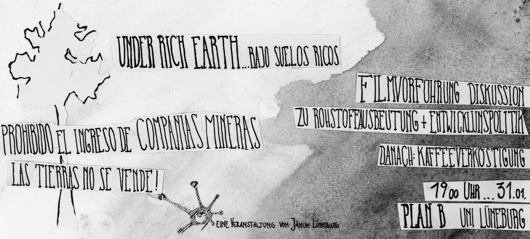 UNDER RICH EARTH...BAJO SUELOS RICOS
PROHIBIDO EL INGRESO DE COMPANIAS MINERAS
LAS TIERRAS NO SE VENDE!
FILMVORFÜHRUNG DISKUSSION
ZU ROHSTOFFAUSBEUTUNG + ENTWICKLUNSPOLITIK
DANACH: KAFFEEVERKÖSTIGUNG
19 00 UHR ... 31.01.
PLAN B UNI LÜNEBURG
EINE VERANSTALTUNG VON JANUN LÜNEBURG